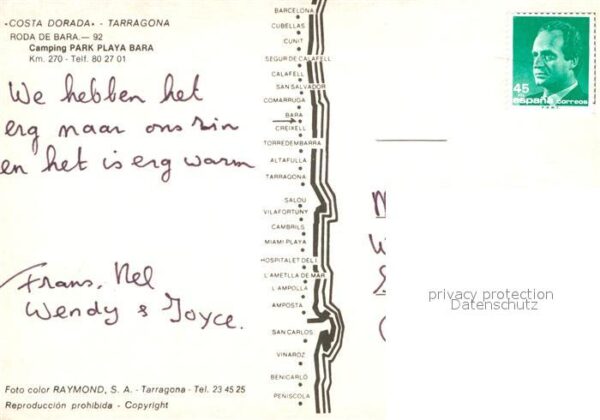 •COSTA DORADA• - TARRAGONA
RODA DE BARA.— 92
Camping PARK PLAYA BARA
Km. 270 - Telf. 80 27 01
We hebben het
erg naar ons zin
en het is erg warm
Frans, Nel
Wendy & Joyce.
Foto color RAYMOND, S. A. - Tarragona - Tel. 23 45 25
Reproducción prohibida - Copyright
BARCELONA
CUBELLAS
CUNIT
SEGUR DE CALAFELL
CALAFELL
SAN SALVADOR
COMARRUGA
BARA
CREIXELL
TORREDEMBARRA
ALTAFULLA
TARRAGONA
SALOU
VILAFORTUNY
CAMBRILS
MIAMI PLAYA
HOSPITALET DEL I.
L'AMETLLA DE MAR
L'AMPOLLA
AMPOSTA
SAN CARLOS
VINAROZ
BENICARLÓ
PEÑISCOLA
45
españa correos
privacy protection
Datenschutz